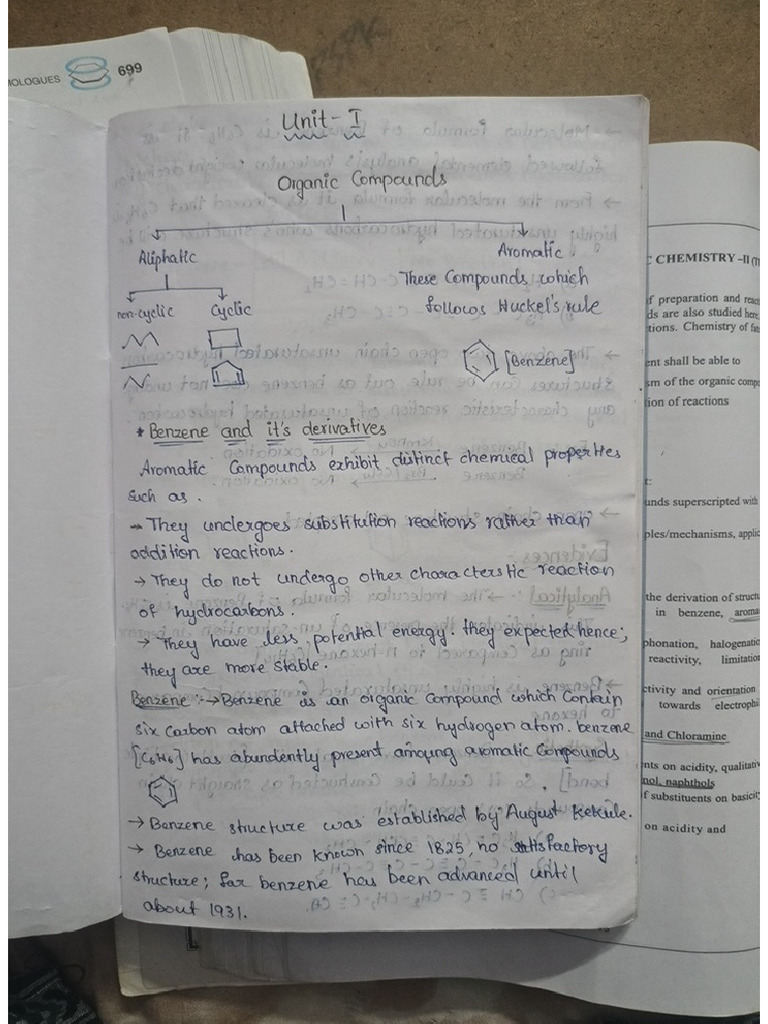 MOLOGUES 699
Unit - I
Organic Compounds
Aliphatic
Aromatic
non-cyclic Cyclic
These Compounds which
follows Huckel's rule
[Benzene]
* Benzene and it's derivatives
Aromatic Compounds exhibit distinct chemical properties
such as.
→ They undergoes substitution reactions rather than
addition reactions.
→ They do not undergo other characterstic reaction
of hydrocarbons.
→ They have less potential energy. they expected hence;
they are more stable.
Benzene :→ Benzene is an organic compound which contain
six carbon atom attached with six hydrogen atom. benzene
[C6H6] has abundently present amoung aromatic Compounds
→ Benzene structure was established by August Kekule.
→ Benzene has been known since 1825, no satisfactory
structure; for benzene has been advanced until
about 1931.
CHEMISTRY -II
f preparation and reac
ds are also studied here,
tions. Chemistry of fa
ent shall be able to
sm of the organic compo
ion of reactions
unds superscripted with
ples/mechanisms, applic
the derivation of structu
in benzene, aroma
phonation, halogenatio
reactivity, limitation
ctivity and orientation
towards electrophi
and Chloramine
nts on acidity, qualitativ
nol, naphthols
f substituents on basicity
on acidity and